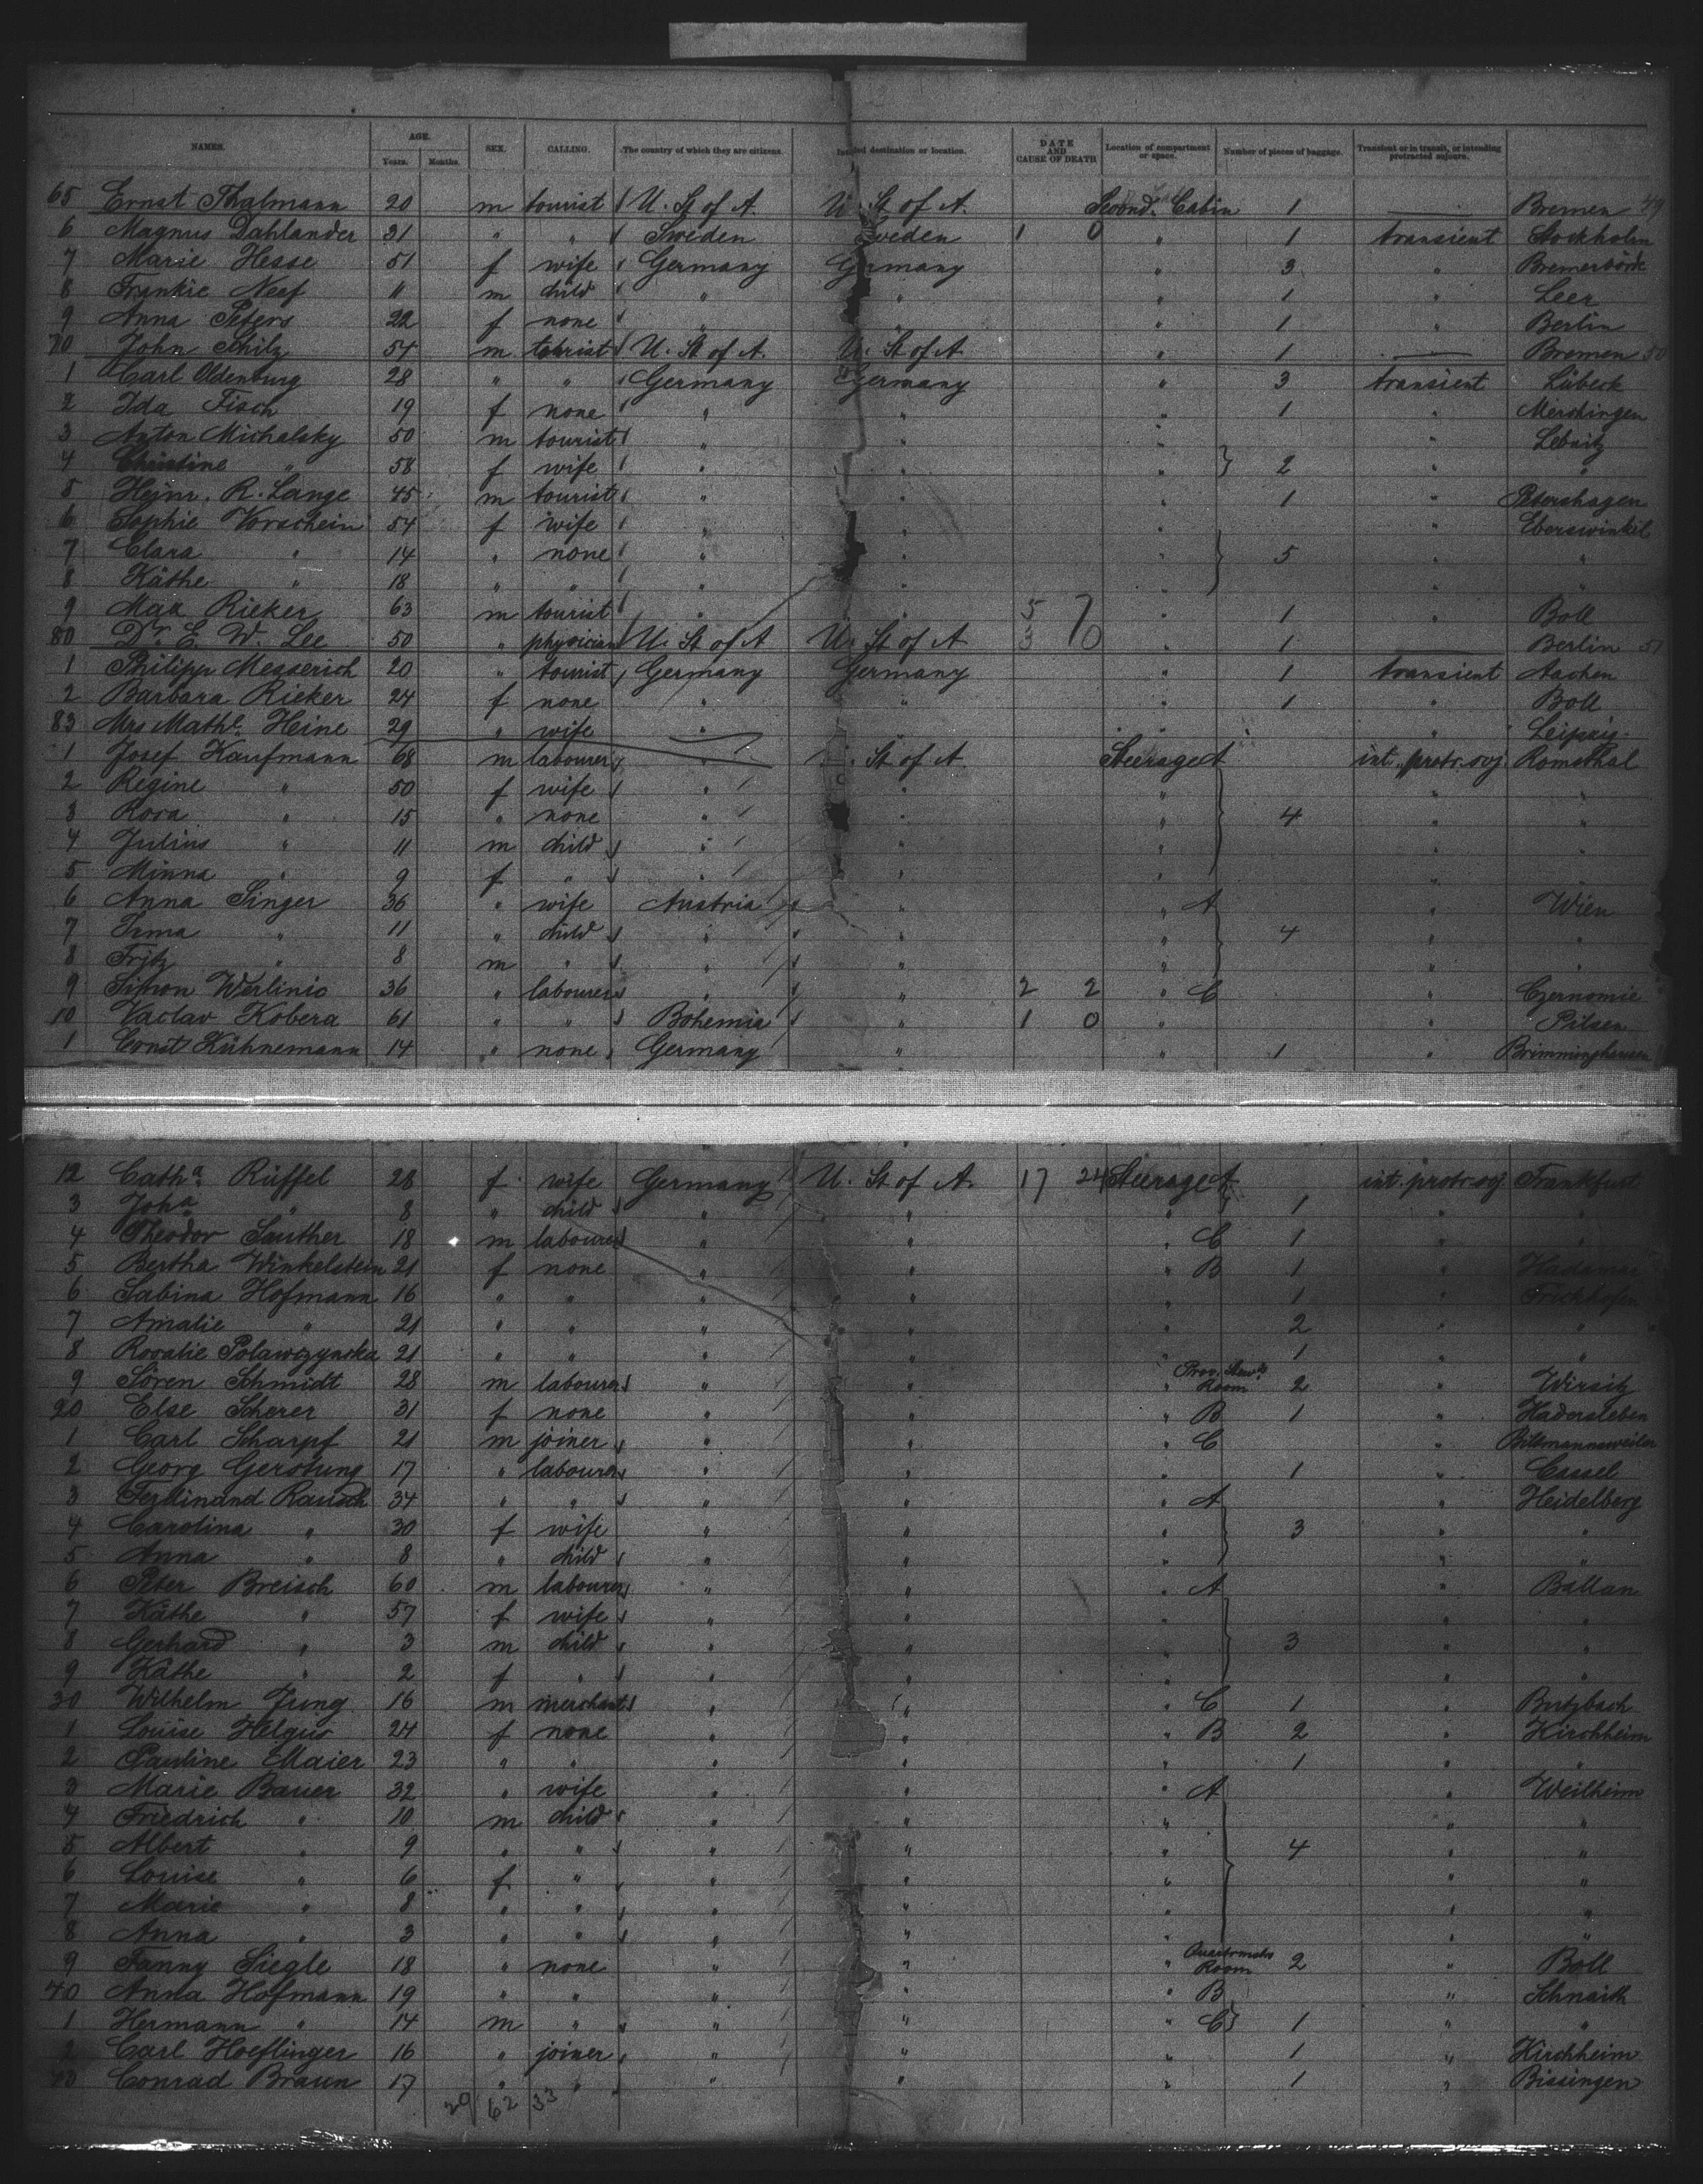 NAMES. AGE. Years. Months. SEX. CALLING. The country of which they are citizens. Intended destination or location. DATE AND CAUSE OF DEATH Location of compartment or space. Number of pieces of baggage. Transient or in transit, or intending protracted sojourn.
65 Ernst Thalmann 20 m tourist U. St of A. U. St of A. Second. Cabin 1 — Bremen 49
6 Magnus Dahlander 31 " " Sweden Sweden 1 0 " 1 transient Stockholm
7 Marie Hesse 51 f wife Germany Germany " 3 " Bremervörde
8 Frankie Neef 11 m child " " " 1 " Leer
9 Anna Peters 22 f none " " " 1 " Berlin
70 John Schilz 54 m tourist U. St of A. U. St of A " 1 — Bremen 50
1 Carl Oldenburg 28 " " Germany Germany " 3 transient Lübeck
2 Ida Fisch 19 f none " " " 1 " Merchingen
3 Anton Michalsky 50 m tourist " " " " Lebnitz
4 Christine " 58 f wife " " " } 2 " "
5 Heinr. R. Lange 45 m tourist " " " 1 " Petershagen
6 Sophie Vorschein 54 f wife " " " " Everswinkel
7 Clara " 14 " none " " " } 5 " "
8 Käthe " 18 " " " " " " "
9 Max Rieker 63 m tourist " " 5 7 " 1 " Boll
80 Dr. E. W. Lee 50 " physician U. St of A U. St of A 3 0 " 1 — Berlin 51
1 Philipp Messerich 20 " tourist Germany Germany " 1 transient Aachen
2 Barbara Rieker 24 f none " " " 1 " Boll
83 Mrs Mathe. Heine 29 " wife " " " " Leipzig
1 Josef Kaufmann 68 m labourer " U. St of A. Steerage A int. protr. soj. Romsthal
2 Regine " 50 f wife " " " " "
3 Rosa " 15 " none " " " } 4 " "
4 Julius " 11 m child " " " " "
5 Minna " 9 f " " " " " "
6 Anna Singer 36 " wife Austria " " A " Wien
7 Irma " 11 " child " " " } 4 " "
8 Fritz " 8 m " " " " " "
9 Simon Werlinic 36 " labourer " " 2 2 " C " Czernomie
10 Vaclav Kobera 61 " " Bohemia " 1 0 " " Pilsen
1 Ernst Kühnemann 14 " none Germany " " 1 " Brimminghausen
12 Catha. Rüffel 28 f wife Germany U. St of A. 17 24 Steerage A. int. protr. soj. Frankfurt
3 Joha " 8 " child " " " } 1 " "
4 Theodor Sauther 18 m labourer " " " C 1 " "
5 Bertha Winkelstein 21 f none " " " B 1 " Hadamar
6 Sabina Hofmann 16 " " " " " 1 " Frickhofen
7 Amalie " 21 " " " " " 2 " "
8 Rosalie Polawczynska 21 " " " " " 1 " "
9 Sören Schmidt 28 m labourer " " " Prov. Stewds. Room 2 " Wirsitz
20 Else Scherer 31 f none " " " B 1 " Hadersleben
1 Carl Scharpf 21 m joiner " " " C "
2 Georg Gerstung 17 " labourer " " " 1 " Cassel
3 Ferdinand Rausch 34 " " " " " A " Heidelberg
4 Carolina " 30 f wife " " " } 3 " "
5 Anna " 8 " child " " " " "
6 Peter Breisch 60 m labourer " " " A " Ballan
7 Käthe " 57 f wife " " " " "
8 Gerhard " 3 m child " " " } 3 " "
9 Käthe " 2 f " " " " " "
30 Wilhelm Jung 16 m merchant " " " C 1 " Butzbach
1 Louise Helgus 24 f none " " " B 2 " Kirchheim
2 Pauline Maier 23 " " " " " 1 " "
3 Marie Bauer 32 " wife " " " A " Weilheim
4 Friedrich " 10 m child " " " " "
5 Albert " 9 " " " " " } 4 " "
6 Louise " 6 f " " " " " "
7 Marie " 8 " " " " " " "
8 Anna " 3 " " " " " " "
9 Fanny Siegle 18 " none " " " Quartermstrs Room 2 " Boll
40 Anna Hofmann 19 " " " " " B " Schnaith
1 Hermann " 14 m " " " " C } 1 " "
2 Carl Hoeflinger 16 " joiner " " " 1 " Kirchheim
Conrad Braun 17 " " " " " 1 " Bissingen
29 62 33